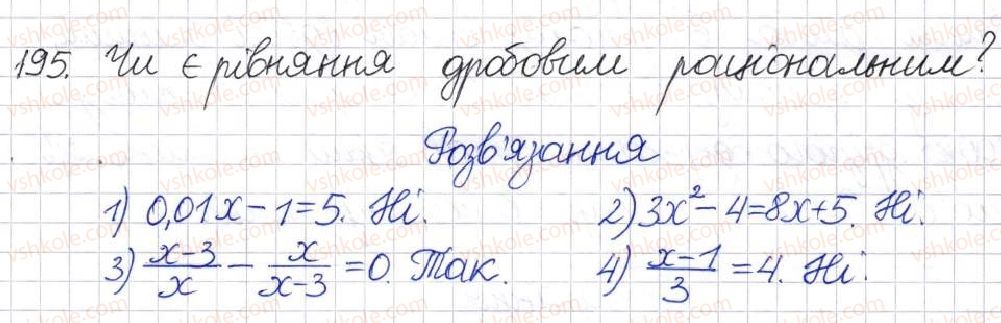 195. Чи є рівняння дробовим раціональним?
Розв'язання
1) 0,01x - 1 = 5. Ні. 2) 3x² - 4 = 8x + 5. Ні.
3) (x-3)/x - x/(x-3) = 0. Так. 4) (x-1)/3 = 4. Ні.
vshkole.com